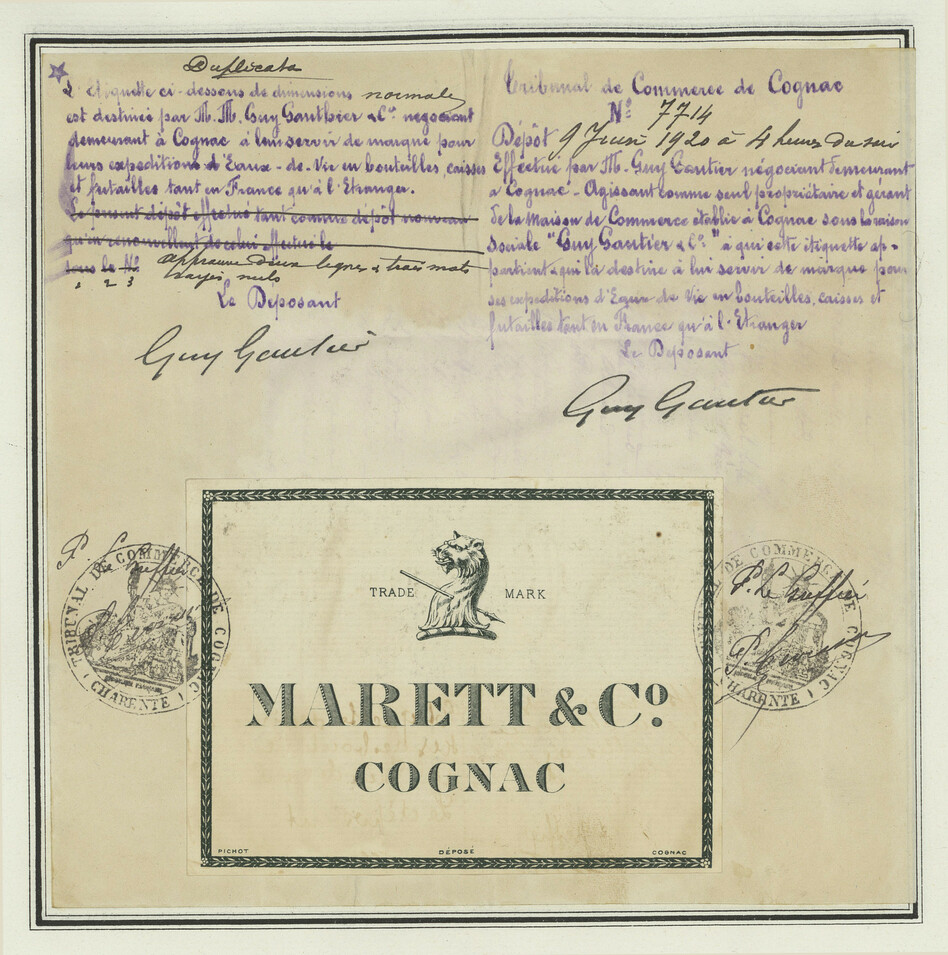 Duplicata
L'étiquette ci-dessous de dimensions normale
est destinée par M. M. Guy Gauthier & Cº négociant
demeurant à Cognac à leur servir de marque pour
leurs expéditions d'Eaux-de-Vie en bouteilles, caisses
et futailles tant en France qu'à l'Etranger.
Le présent dépôt effectué tant comme dépôt nouveau
qu'en renouvellant de celui effectué le
sous le Nº
approuvé deux lignes & trois mots
rayés nuls
1 2 3
Le Déposant
Guy Gautier
Tribunal de Commerce de Cognac
Nº 7714
Dépôt 9 Juin 1920 à 4 heures du soir
Effectué par M. Guy Gautier négociant demeurant
à Cognac - Agissant comme seul propriétaire et gérant
de la Maison de Commerce établie à Cognac sous la raison
sociale "Guy Gautier & Cº" à qui cette étiquette ap-
partient & qui la destine à lui servir de marque pour
ses expéditions d'Eaux de Vie en bouteilles, caisses et
futailles tant en France qu'à l'Etranger
Le Déposant
Guy Gautier
TRADE MARK
MARETT & Cº
COGNAC
PICHOT DÉPOSÉ COGNAC
P. Le Greffier
TRIBUNAL DE COMMERCE DE COGNAC
(CHARENTE)
P. Le Greffier
TRIBUNAL DE COMMERCE DE COGNAC
(CHARENTE)